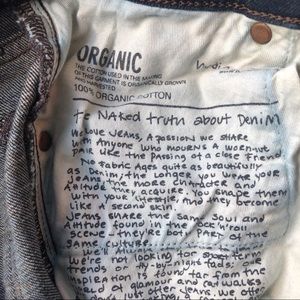 ORGANIC
THE COTTON USED IN THE MAKING
OF THIS GARMENT IS ORGANICALLY GROWN
AND HARVESTED
100% ORGANIC COTTON
THE NAKED TRUTH ABOUT DENIM
WE LOVE JEANS, A PASSION WE SHARE
WITH ANYONE WHO MOURNS A WORN-OUT
PAIR LIKE THE PASSING OF A CLOSE FRIEND
NO FABRIC AGES QUITE AS BEAUTIFULLY
AS DENIM; THE LONGER YOU WEAR YOUR
JEANS THE MORE CHARACTER AND
ATTITUDE THEY ACQUIRE. YOU SHAPE THEM
WITH YOUR LIFESTYLE AND THEY BECOME
LIKE A SECOND SKIN.
JEANS SHARE THE SAME SOUL AND
ATTITUDE FOUND IN THE ROCK'N'ROLL
SCENE - THEY'RE BOTH PART OF THE
SAME CULTURE.
WE'LL ALWAYS
WE'RE NOT LOOKING FOR SHORT TERM
TRENDS OR FADS; OUR
INSPIRATION IS FOUND FAR FROM THE
WORLD OF GLAMOUR AND CATWALKS
JUST OTHER JEANS. WE OFFER